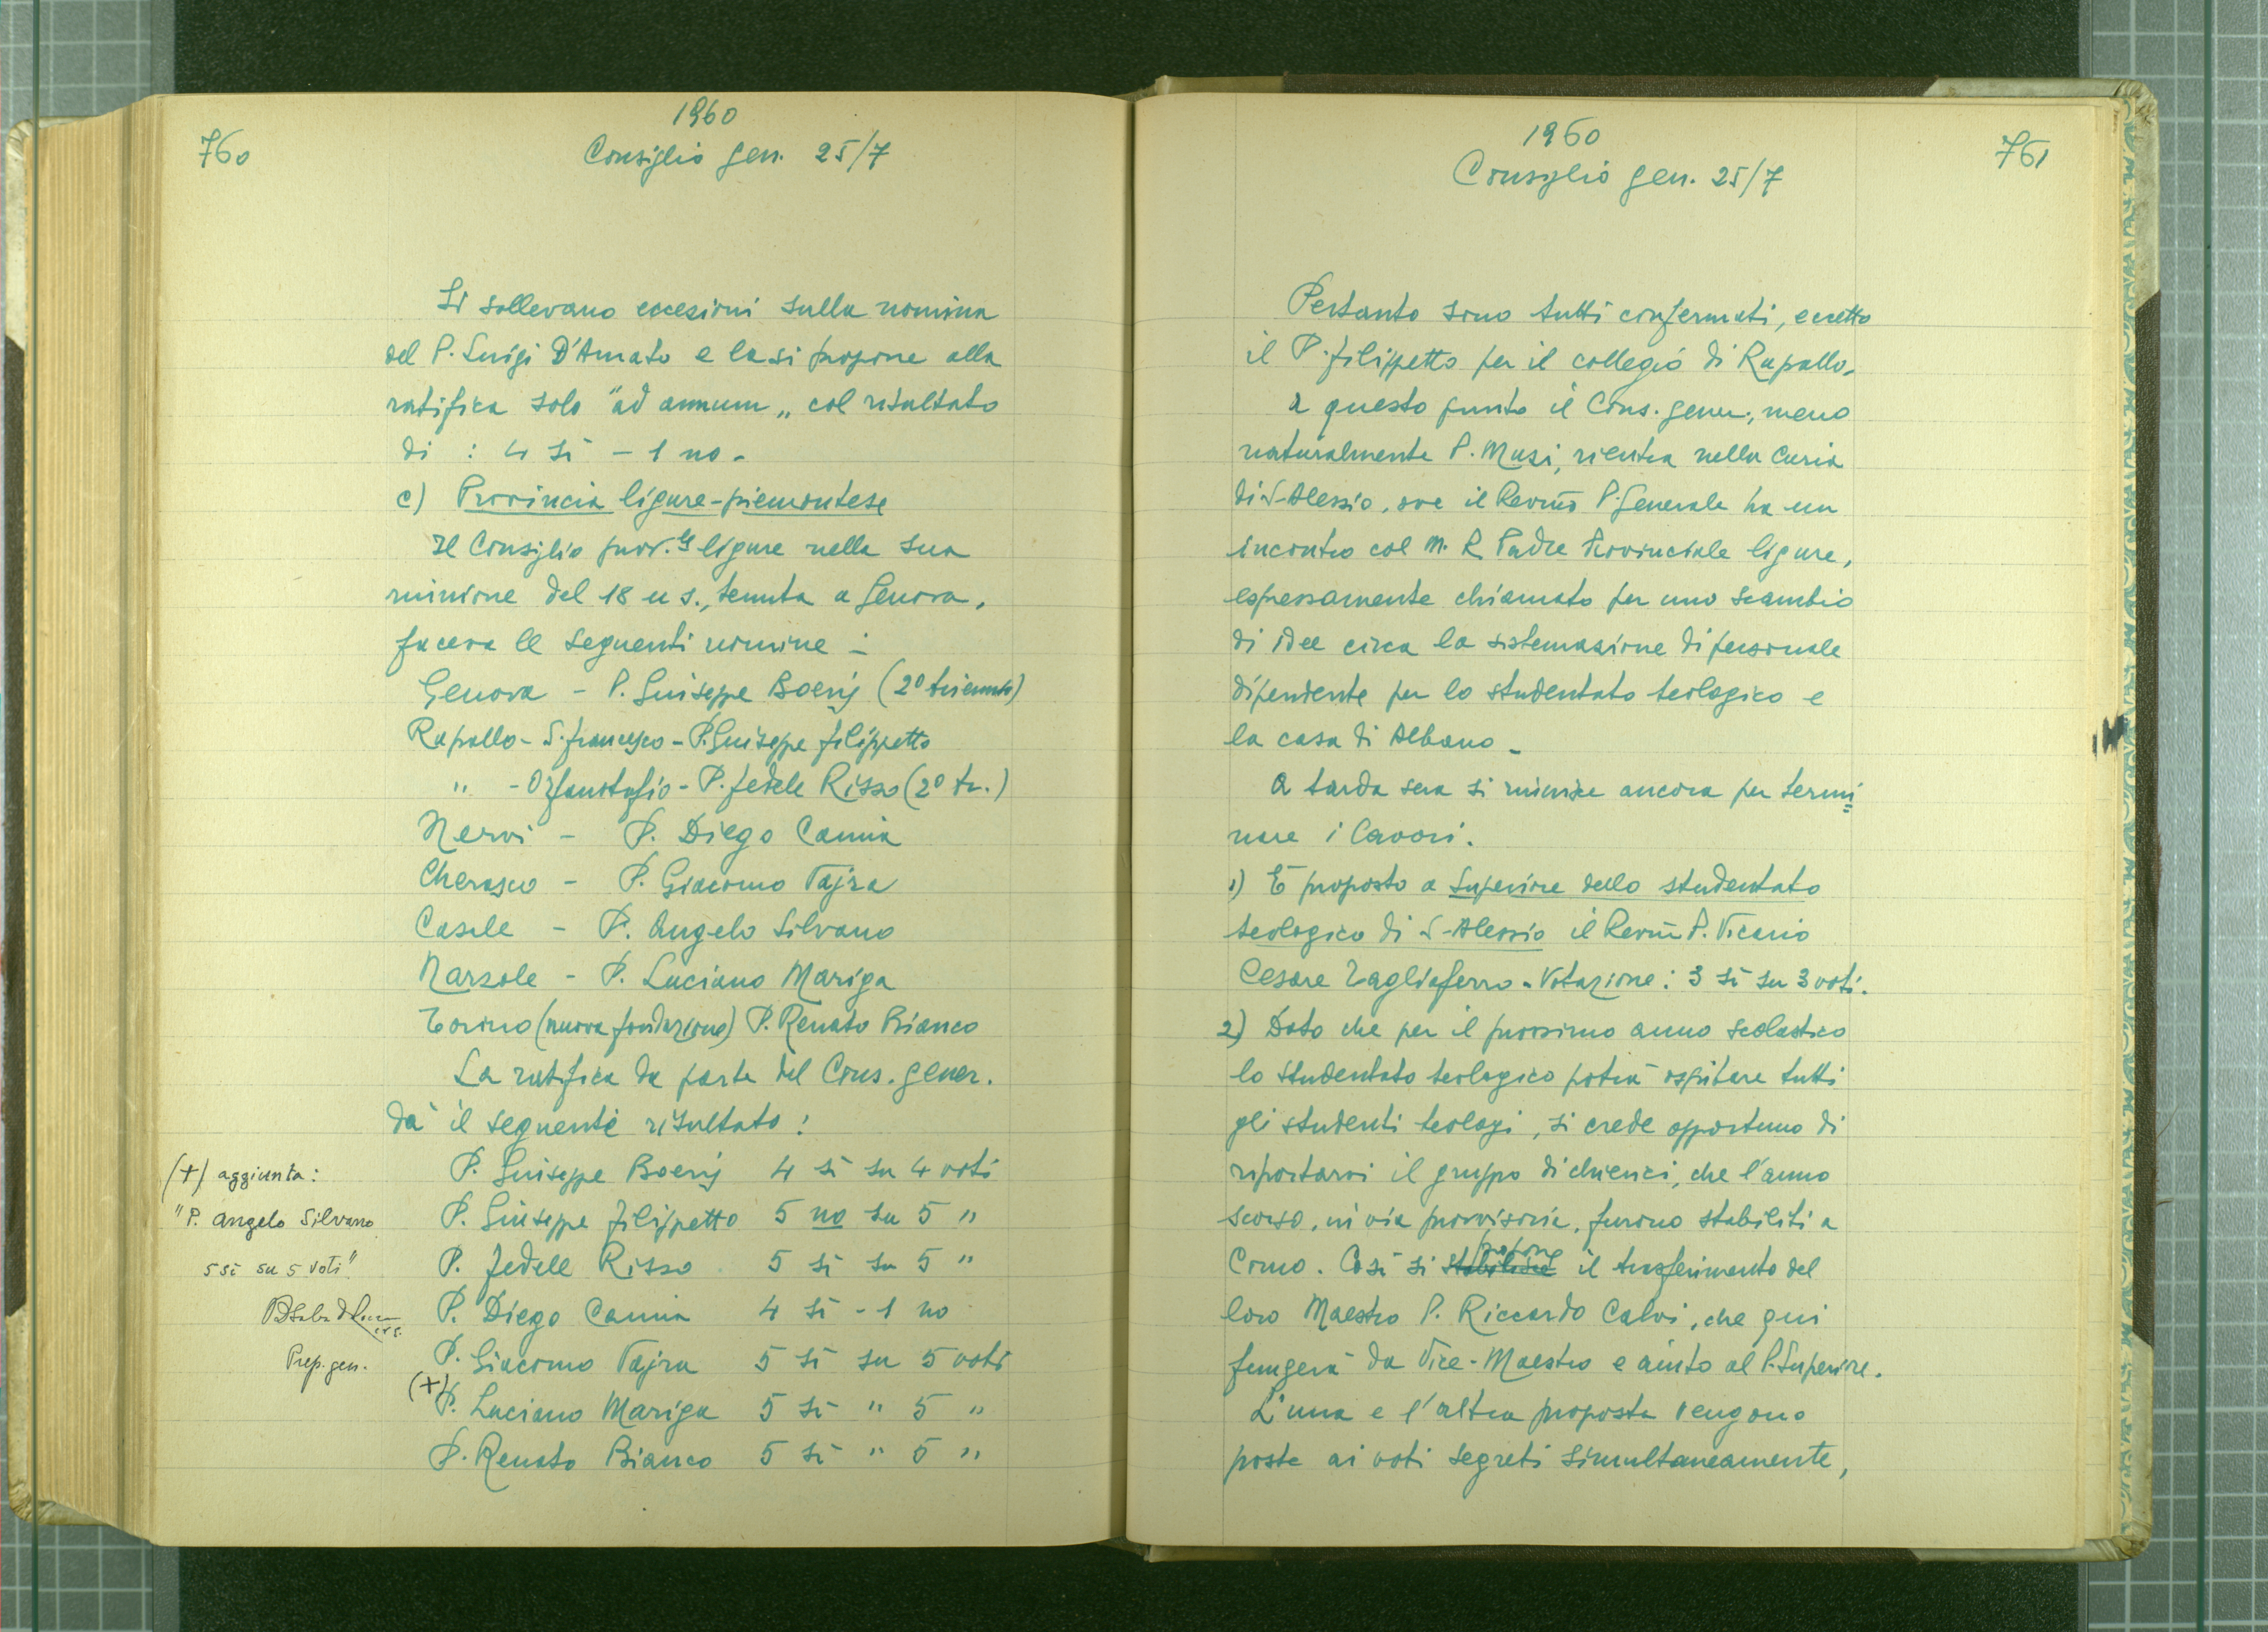 760
1960
Consiglio gen. 25/7
Si sollevano eccezioni sulla nomina
del P. Luigi D'Amato e la si propone alla
ratifica solo "ad annum„ col risultato
di : 4 sì - 1 no -
c) Provincia ligure-piemontese
Il Consiglio prov.le ligure nella sua
riunione del 18 u s., tenuta a Genova,
faceva le seguenti nomine :
Genova - P. Giuseppe Boerij (2º triennio)
Rapallo - S. Francesco - P. Giuseppe Filippetto
" - Orfanotrofio - P. Fedele Risso (2º tr.)
Nervi - P. Diego Camia
Cherasco - P. Giacomo Vajra
Casale - P. Angelo Silvano
Narzole - P. Luciano Mariga
Torino (nuova fondazione) P. Renato Bianco
La ratifica da parte del Cons. gener.
dà il seguente risultato :
P. Giuseppe Boerij 4 sì su 4 voti
P. Giuseppe Filippetto 5 no su 5 "
P. Fedele Risso 5 sì su 5 "
P. Diego Camia 4 sì - 1 no
P. Giacomo Vajra 5 sì su 5 voti
(+) P. Luciano Mariga 5 sì " 5 "
P. Renato Bianco 5 sì " 5 "
(+) aggiunta :
"P. Angelo Silvano
5 sì su 5 voti"
Prep. gen.
761
1960
Consiglio gen. 25/7
Pertanto sono tutti confermati, eccetto
il P. Filippetto per il collegio di Rapallo.
A questo punto il Cons. gener., meno
naturalmente P. Muzi, rientra nella Curia
di S. Alessio, ove il Rev.mo P. Generale ha un
incontro col M. R. Padre Provinciale ligure,
espressamente chiamato per uno scambio
di idee circa la sistemazione di personale
dipendente per lo studentato teologico e
la casa di Albano -
A tarda sera si riunisce ancora per termi=
nare i lavori.
1) È proposto a Superiore dello studentato
teologico di S. Alessio il Rev.m P. Vicario
Cesare Tagliaferro - Votazione : 3 sì su 3 voti.
2) Dato che per il prossimo anno scolastico
lo studentato teologico potrà ospitare tutti
gli studenti teologi, si crede opportuno di
riportarvi il gruppo di chierici, che l'anno
scorso, in via provvisoria, furono stabiliti a
Como. Così si stabilisce propone il trasferimento del
loro Maestro P. Riccardo Calvi, che qui
fungerà da Vice-Maestro e aiuto al P. Superiore.
L'una e l'altra proposta vengono
poste ai voti segreti simultaneamente,